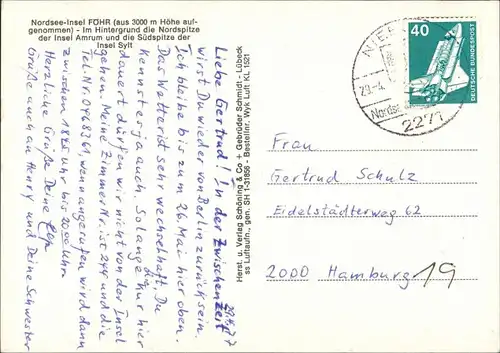 Nordsee-Insel FÖHR (aus 3000 m Höhe auf-
genommen) - Im Hintergrund die Nordspitze
der Insel Amrum und die Südspitze der
Insel Sylt
29.4.77
Liebe Gertrud! In der Zwischenzeit
wirst Du wieder von Berlin zurück sein.
Ich bleibe bis zum 26. Mai hier oben.
Das Wetter ist sehr wechselhaft. Du
kennst es ja auch. Solange die Kur hier
dauert dürfen wir nicht von der Insel
ab. Meine Zimmer Nr. ist 244 und die
Tel. Nr. wenn angerufen wird dann
zwischen Uhr bis 20 00 Uhr
Herzliche Grüße Deine
Grüße auch an Henry und Deine Schwester
Herst. u. Verlag Schöning & Co + Gebrüder Schmidt - Lübeck
ss Luftaufn., gen. SH 1-31856 - Bestellnr. Wyk Luft KL 1521
40
DEUTSCHE BUNDESPOST
Nordsee
2271
Frau
Gertrud Schulz
Eidelstädterweg 62
2000 Hamburg 19